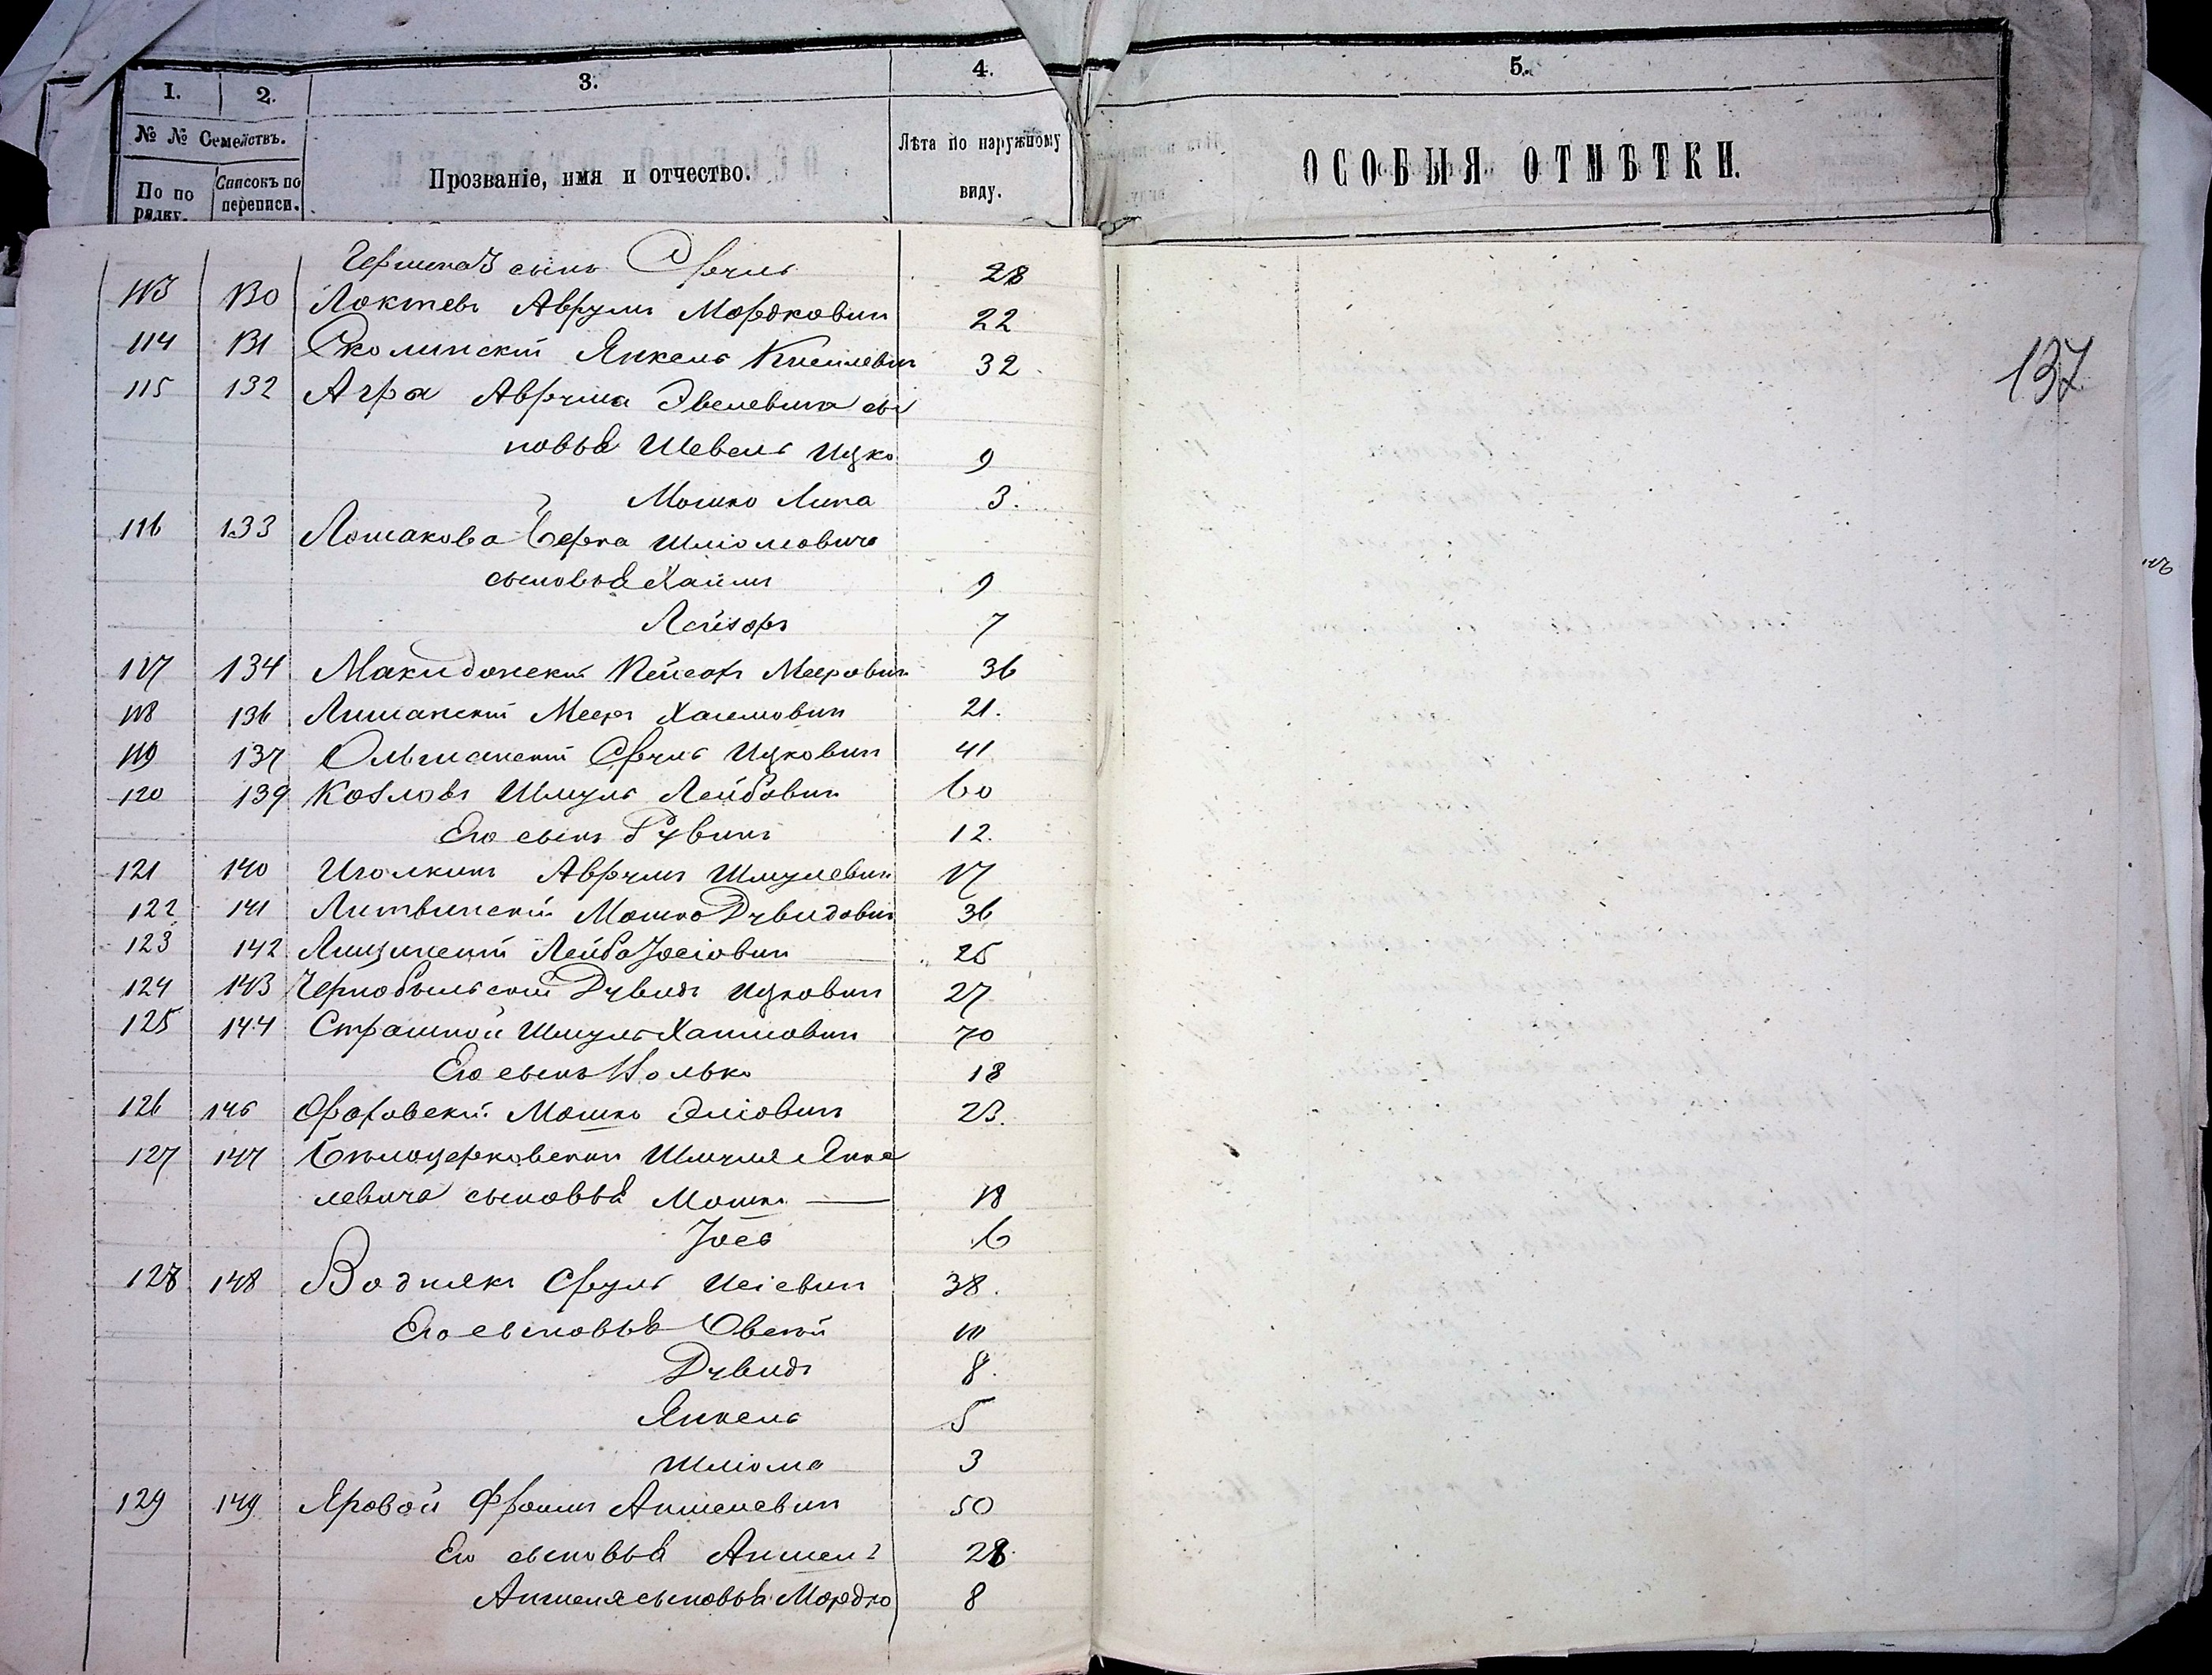 1.
2.
3.
4.
5.
№ № Семействъ.
По по рядку.
Списокъ по переписи.
Прозваніе, имя и отчество.
Лѣта по наружному виду.
ОСОБЫЯ ОТМѢТКИ.
137
Гершка сынъ Сруль 28
113 130 Локтевъ Аврумъ Мордковичъ 22
114 131 Сколинскій Янкель 32
115 132 Агра Аврума Эвелевича сы
новья Шевель Ицко 9
Мошко Липа 3.
116 133 Лошакова Берка Шліомовича
сыновья Хаимъ 9
Лейзоръ 7
117 134 Макидонскій Мееровичъ 36
118 136 Лишанскій Мееръ Хаимовичъ 21.
119 137 Ольшанскій Сруль Ицковичъ 41
120 139 Козловъ Шмуль Лейбовичъ 60
Его сынъ Рувинъ 12.
121 140 Иголкинъ Аврумъ Шмулевичъ 17
122 141 Литвинскій Мошко Дувидовичъ 36
123 142 Лищинскій Лейба Іосіовичъ 25
124 143 Чернобыльскій Дувидъ Ицковичъ 27
125 144 Страшной Шмуль Хаимовичъ 70
Его сынъ Волько 18
126 146 Мошко Эліовичъ 23.
127 147 Бѣлоцерковскій Шмуля Янке
левича сыновья Мошко — 18
Іось 6
128 148 Воднякъ Сруль Исіевичъ 38.
Его сыновья Овсій 10
Дувидъ 8.
Янкель 5
Шліома 3
129 149 Яровой Фроимъ Аншелевичъ 50
Его сыновья Аншель 28.
Аншеля сыновья Мордко 8